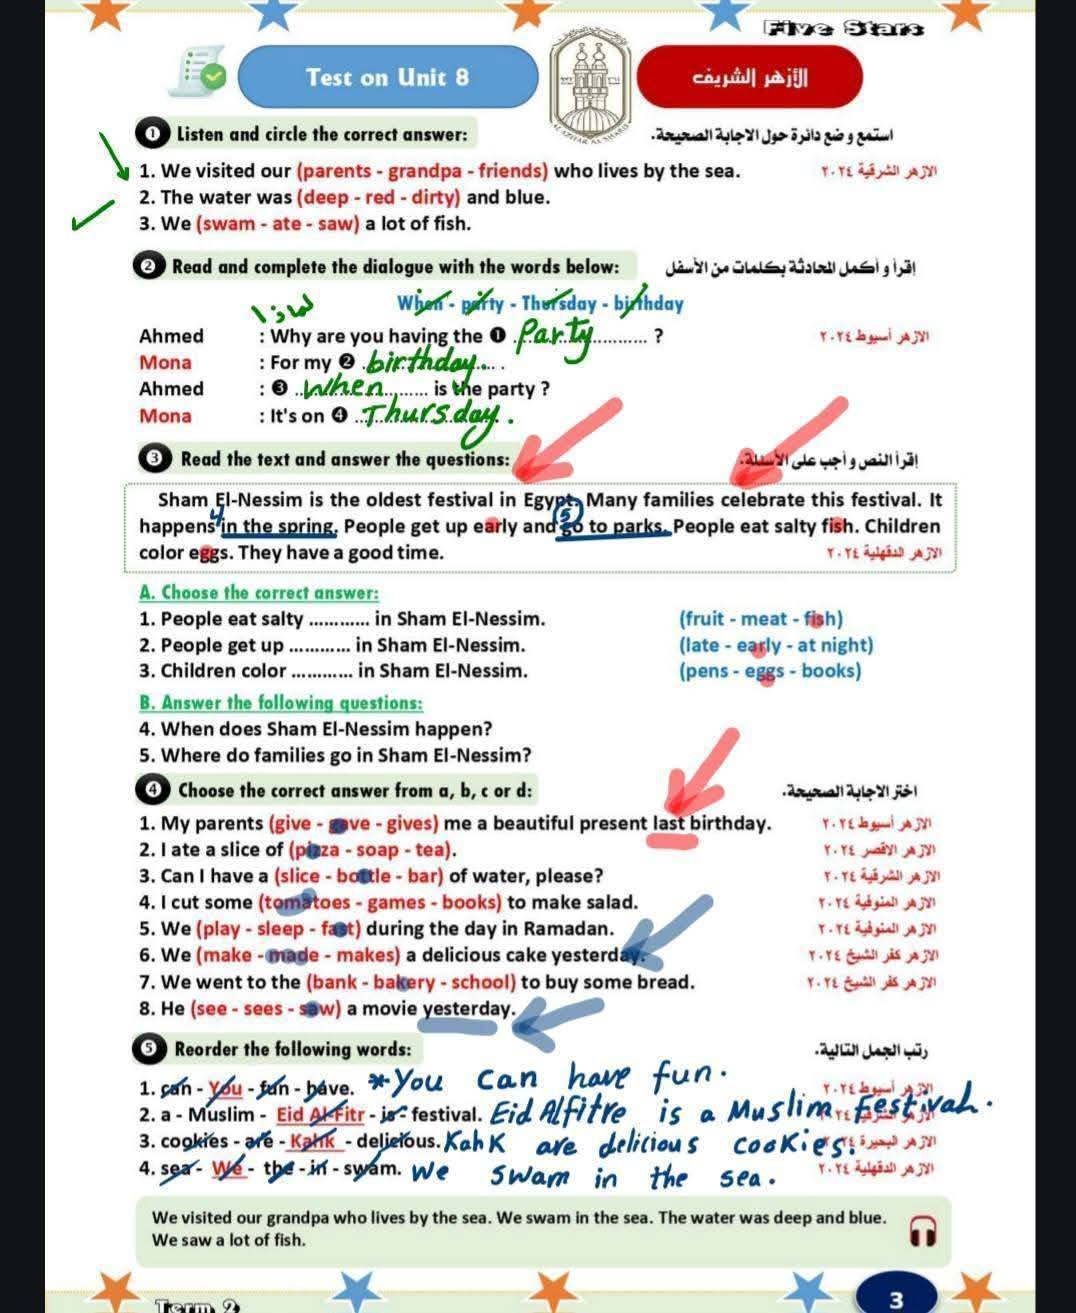 Five Stars
Test on Unit 8
الأزهر الشريف
1 Listen and circle the correct answer: استمع و ضع دائرة حول الاجابة الصحيحة.
1. We visited our (parents - grandpa - friends) who lives by the sea. الازهر الشرقية ٢٠٢٤
2. The water was (deep - red - dirty) and blue.
3. We (swam - ate - saw) a lot of fish.
2 Read and complete the dialogue with the words below: إقرأ و أكمل المحادثة بكلمات من الأسفل
When - party - Thursday - birthday
لماذا
Ahmed : Why are you having the ❶ Party ? الازهر أسيوط ٢٠٢٤
Mona : For my ❷ birthday. .
Ahmed : ❸ When is the party ?
Mona : It's on ❹ Thursday. .
3 Read the text and answer the questions: إقرأ النص و أجب على الأسئلة.
Sham El-Nessim is the oldest festival in Egypt. Many families celebrate this festival. It
4 5
happens in the spring. People get up early and go to parks. People eat salty fish. Children
color eggs. They have a good time. الازهر الدقهلية ٢٠٢٤
A. Choose the correct answer:
1. People eat salty ............ in Sham El-Nessim. (fruit - meat - fish)
2. People get up ............ in Sham El-Nessim. (late - early - at night)
3. Children color ............ in Sham El-Nessim. (pens - eggs - books)
B. Answer the following questions:
4. When does Sham El-Nessim happen?
5. Where do families go in Sham El-Nessim?
4 Choose the correct answer from a, b, c or d: اختر الاجابة الصحيحة.
1. My parents (give - gave - gives) me a beautiful present last birthday. الازهر أسيوط ٢٠٢٤
2. I ate a slice of (pizza - soap - tea). الازهر الاقصر ٢٠٢٤
3. Can I have a (slice - bottle - bar) of water, please? الازهر الشرقية ٢٠٢٤
4. I cut some (tomatoes - games - books) to make salad. الازهر المنوفية ٢٠٢٤
5. We (play - sleep - fast) during the day in Ramadan. الازهر المنوفية ٢٠٢٤
6. We (make - made - makes) a delicious cake yesterday. الازهر كفر الشيخ ٢٠٢٤
7. We went to the (bank - bakery - school) to buy some bread. الازهر كفر الشيخ ٢٠٢٤
8. He (see - sees - saw) a movie yesterday.
5 Reorder the following words: رتب الجمل التالية.
1. can - You - fun - have. *You can have fun. الازهر أسيوط ٢٠٢٤
2. a - Muslim - Eid Al-Fitr - is - festival. Eid Alfitre is a Muslim Festivah. الازهر الشرقية ٢٠٢٤
3. cookies - are - Kahk - delicious. Kahk are delicious cookies. الازهر البحيرة ٢٠٢٤
4. sea - We - the - in - swam. We swam in the sea. الازهر الدقهلية ٢٠٢٤
We visited our grandpa who lives by the sea. We swam in the sea. The water was deep and blue.
We saw a lot of fish.
Term 2
3